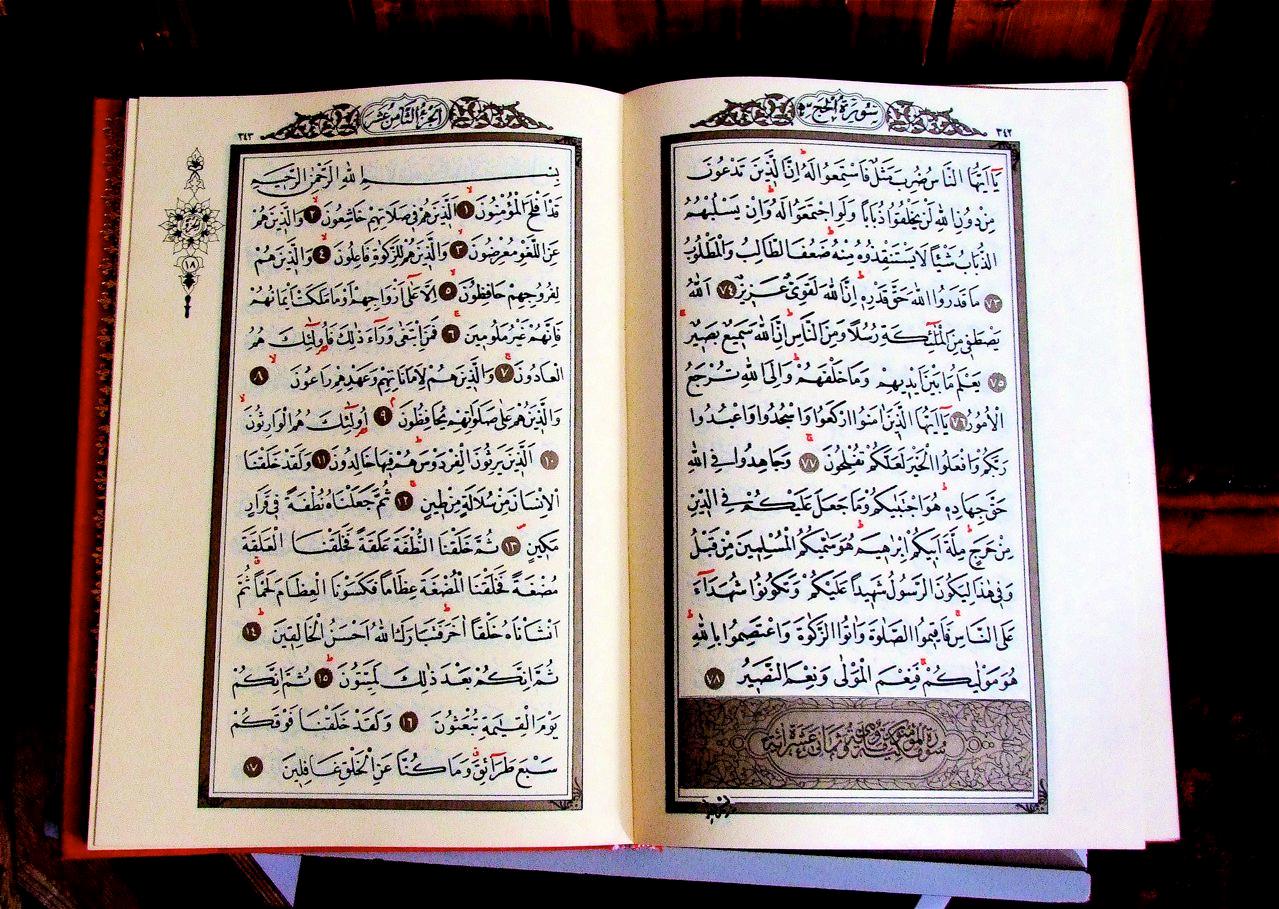 ٣٤٢
سُورَةُ الْحَجِّ
يَٓا اَيُّهَا النَّاسُ ضُرِبَ مَثَلٌ فَاسْتَمِعُوا لَهُ اِنَّ الَّذِينَ تَدْعُونَ
مِنْ دُونِ اللّٰهِ لَنْ يَخْلُقُوا ذُبَاباً وَلَوِ اجْتَمَعُوا لَهُ وَاِنْ يَسْلُبْهُمُ
الذُّبَابُ شَيْئاً لَا يَسْتَنْقِذُوهُ مِنْهُ ضَعُفَ الطَّالِبُ وَالْمَطْلُوبُ
٧٣ مَا قَدَرُوا اللّٰهَ حَقَّ قَدْرِهِ اِنَّ اللّٰهَ لَقَوِىٌّ عَزِيزٌ ٧٤ اَللّٰهُ
يَصْطَفِى مِنَ الْمَلٰٓئِكَةِ رُسُلاً وَمِنَ النَّاسِ اِنَّ اللّٰهَ سَمِيعٌ بَصِيرٌ
٧٥ يَعْلَمُ مَا بَيْنَ اَيْدِيهِمْ وَمَا خَلْفَهُمْ وَاِلَى اللّٰهِ تُرْجَعُ
الْاُمُورُ ٧٦ يَٓا اَيُّهَا الَّذِينَ اٰمَنُوا ارْكَعُوا وَاسْجُدُوا وَاعْبُدُوا
رَبَّكُمْ وَافْعَلُوا الْخَيْرَ لَعَلَّكُمْ تُفْلِحُونَ ٧٧ وَجَاهِدُوا فِى اللّٰهِ
حَقَّ جِهَادِهِ هُوَ اجْتَبٰيكُمْ وَمَا جَعَلَ عَلَيْكُمْ فِى الدِّينِ
مِنْ حَرَجٍ مِلَّةَ اَبِيكُمْ اِبْرٰهِيمَ هُوَ سَمّٰيكُمُ الْمُسْلِمِينَ مِنْ قَبْلُ
وَفِى هٰذَا لِيَكُونَ الرَّسُولُ شَهِيداً عَلَيْكُمْ وَتَكُونُوا شُهَدَٓاءَ
عَلَى النَّاسِ فَاَقِيمُوا الصَّلٰوةَ وَاٰتُوا الزَّكٰوةَ وَاعْتَصِمُوا بِاللّٰهِ
هُوَ مَوْلٰيكُمْ فَنِعْمَ الْمَوْلٰى وَنِعْمَ النَّصِيرُ ٧٨
سورة المؤمنون مكية وهى مائة وثمانى عشرة آية
اَلْجُزْءُ الثَّامِنُ عَشَرَ
٣٤٣
بِسْمِ اللّٰهِ الرَّحْمٰنِ الرَّحِيمِ
قَدْ اَفْلَحَ الْمُؤْمِنُونَ ١ اَلَّذِينَ هُمْ فِى صَلَاتِهِمْ خَاشِعُونَ ٢ وَالَّذِينَ هُمْ
عَنِ اللَّغْوِ مُعْرِضُونَ ٣ وَالَّذِينَ هُمْ لِلزَّكٰوةِ فَاعِلُونَ ٤ وَالَّذِينَ هُمْ
لِفُرُوجِهِمْ حَافِظُونَ ٥ اِلَّا عَلٰٓى اَزْوَاجِهِمْ اَوْ مَا مَلَكَتْ اَيْمَانُهُمْ
فَاِنَّهُمْ غَيْرُ مَلُومِينَ ٦ فَمَنِ ابْتَغٰى وَرَٓاءَ ذٰلِكَ فَاُولٰٓئِكَ هُمُ
الْعَادُونَ ٧ وَالَّذِينَ هُمْ لِاَمَانَاتِهِمْ وَعَهْدِهِمْ رَاعُونَ ٨
وَالَّذِينَ هُمْ عَلٰى صَلَوَاتِهِمْ يُحَافِظُونَ ٩ اُولٰٓئِكَ هُمُ الْوَارِثُونَ
١٠ اَلَّذِينَ يَرِثُونَ الْفِرْدَوْسَ هُمْ فِيهَا خَالِدُونَ ١١ وَلَقَدْ خَلَقْنَا
الْاِنْسَانَ مِنْ سُلَالَةٍ مِنْ طِينٍ ١٢ ثُمَّ جَعَلْنَاهُ نُطْفَةً فِى قَرَارٍ
مَكِينٍ ١٣ ثُمَّ خَلَقْنَا النُّطْفَةَ عَلَقَةً فَخَلَقْنَا الْعَلَقَةَ
مُضْغَةً فَخَلَقْنَا الْمُضْغَةَ عِظَاماً فَكَسَوْنَا الْعِظَامَ لَحْماً ثُمَّ
اَنْشَاْنَاهُ خَلْقاً اٰخَرَ فَتَبَارَكَ اللّٰهُ اَحْسَنُ الْخَالِقِينَ ١٤
ثُمَّ اِنَّكُمْ بَعْدَ ذٰلِكَ لَمَيِّتُونَ ١٥ ثُمَّ اِنَّكُمْ
يَوْمَ الْقِيٰمَةِ تُبْعَثُونَ ١٦ وَلَقَدْ خَلَقْنَا فَوْقَكُمْ
سَبْعَ طَرَٓائِقَ وَمَا كُنَّا عَنِ الْخَلْقِ غَافِلِينَ ١٧
١٨